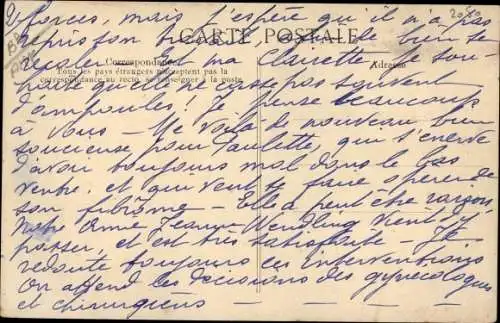 forces, mais j'espère qu'il n'a pas
CARTE POSTALE
bien se
régaler Et ma Clairette je sou-
Correspondance
Adresse
Tous les pays étrangers n'acceptent pas la
correspondance au recto, se renseigner à la poste
haite qu'elle ne casse pas souvent
d'ampoules! Je pense beaucoup
à vous - Me voilà de nouveau bien
soucieuse pour Paulette, qui s'énerve
d'avoir toujours mal dans le bas
ventre, et qui veut se faire opérer de
son fibrôme - Elle a peut être raison,
Notre amie Jeanne Wendling vient d'y
passer, et est très satisfaite - Je
redoute toujours les interventions
On attend les décisions des gynécologues
et chirurgiens